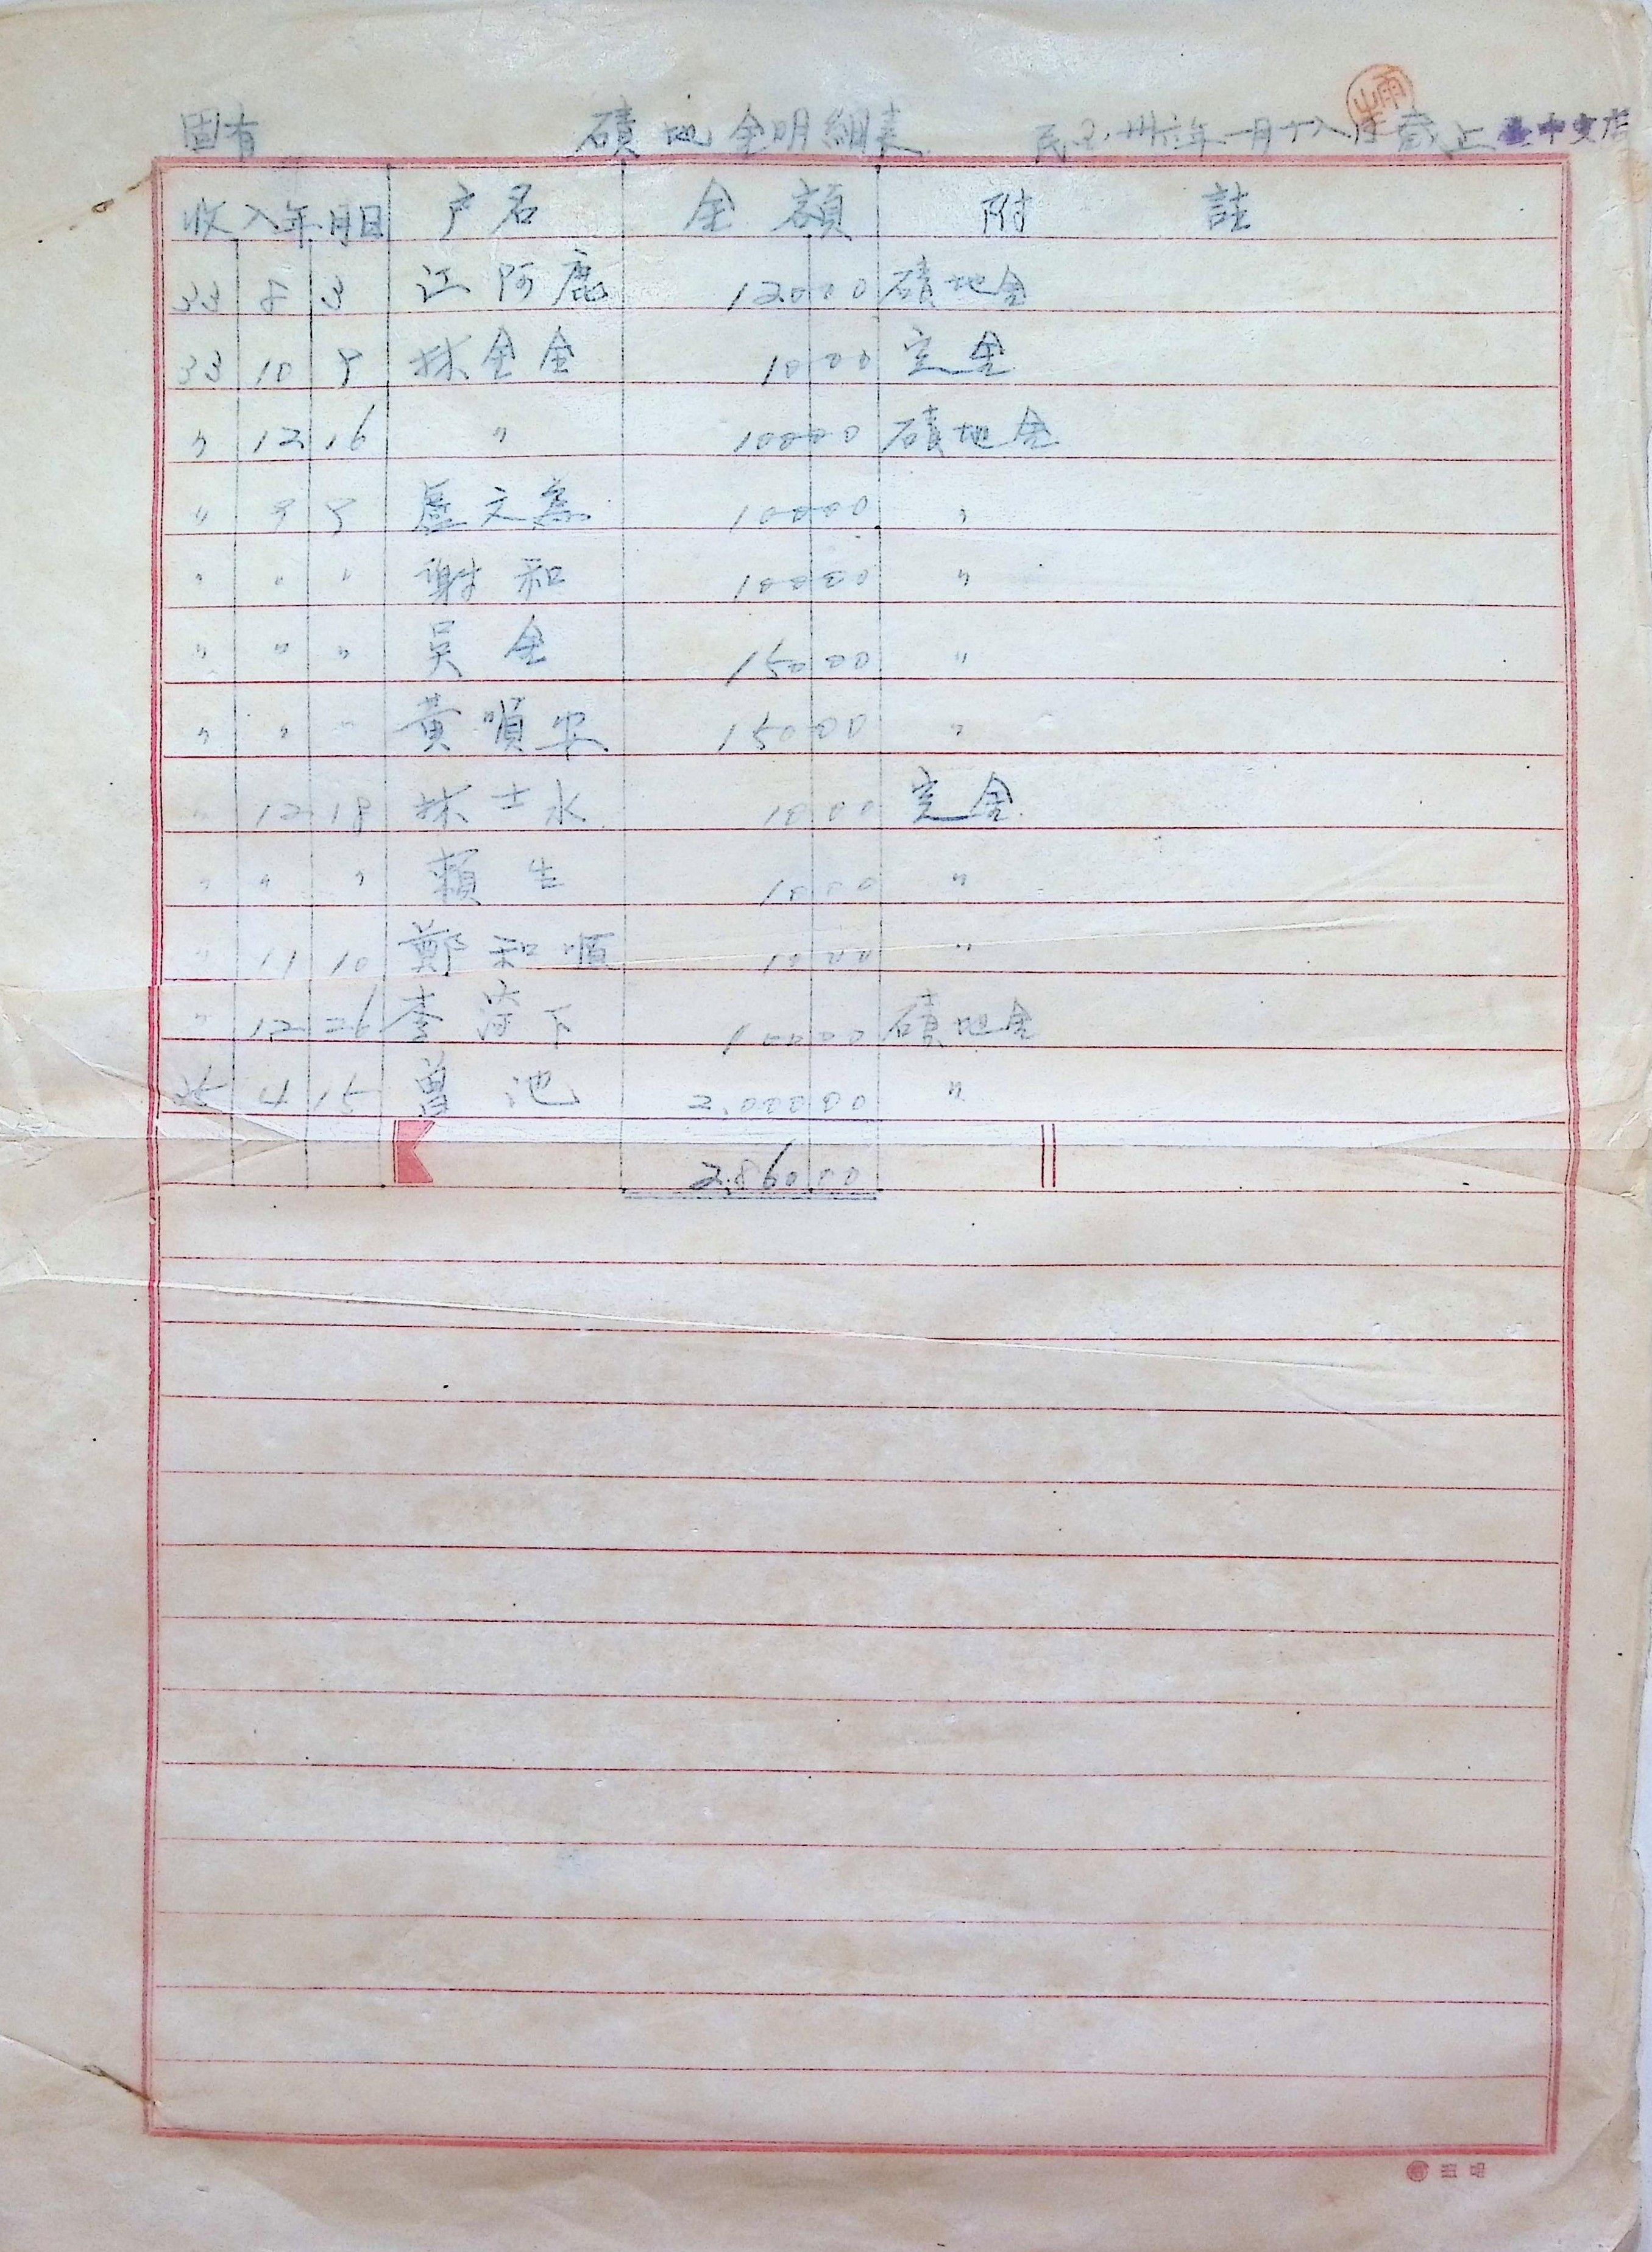 固有 磧地金明細表 民国卅六年一月十八日末截止 臺中支店
收入年月日 户名 金額 附註
33 8 3 江阿鹿 12000 磧地金
33 10 9 林金全 1000 定金
〃 12 16 〃 10000 磧地金
〃 9 9 盧文 10000 〃
〃 〃 〃 謝和 10000 〃
〃 〃 〃 吳金 15000 〃
〃 〃 〃 黃順安 15000 〃
〃 12 18 林士水 1000 定金
〃 〃 〃 賴生 1000 〃
〃 11 10 鄭和順 1000 〃
〃 12 26 李 下 10000 磧地金
35 4 15 曾池 2,00000 〃
2,86000